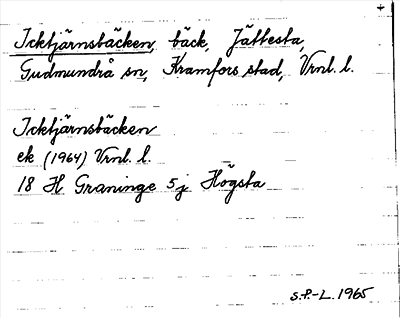 Icktjärnsbäcken, bäck, Jättesta,
Gudmundrå sn, Kramfors stad, Vrnl. l.
Icktjärnsbäcken
ek (1964) Vrnl. l.
18 H Graninge 5j Högsta
S.P.-L. 1965